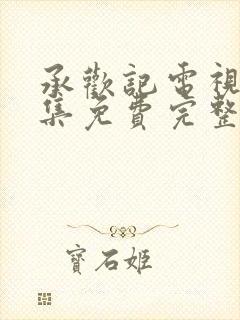 承歡記電視
集免費完整
寶石姬